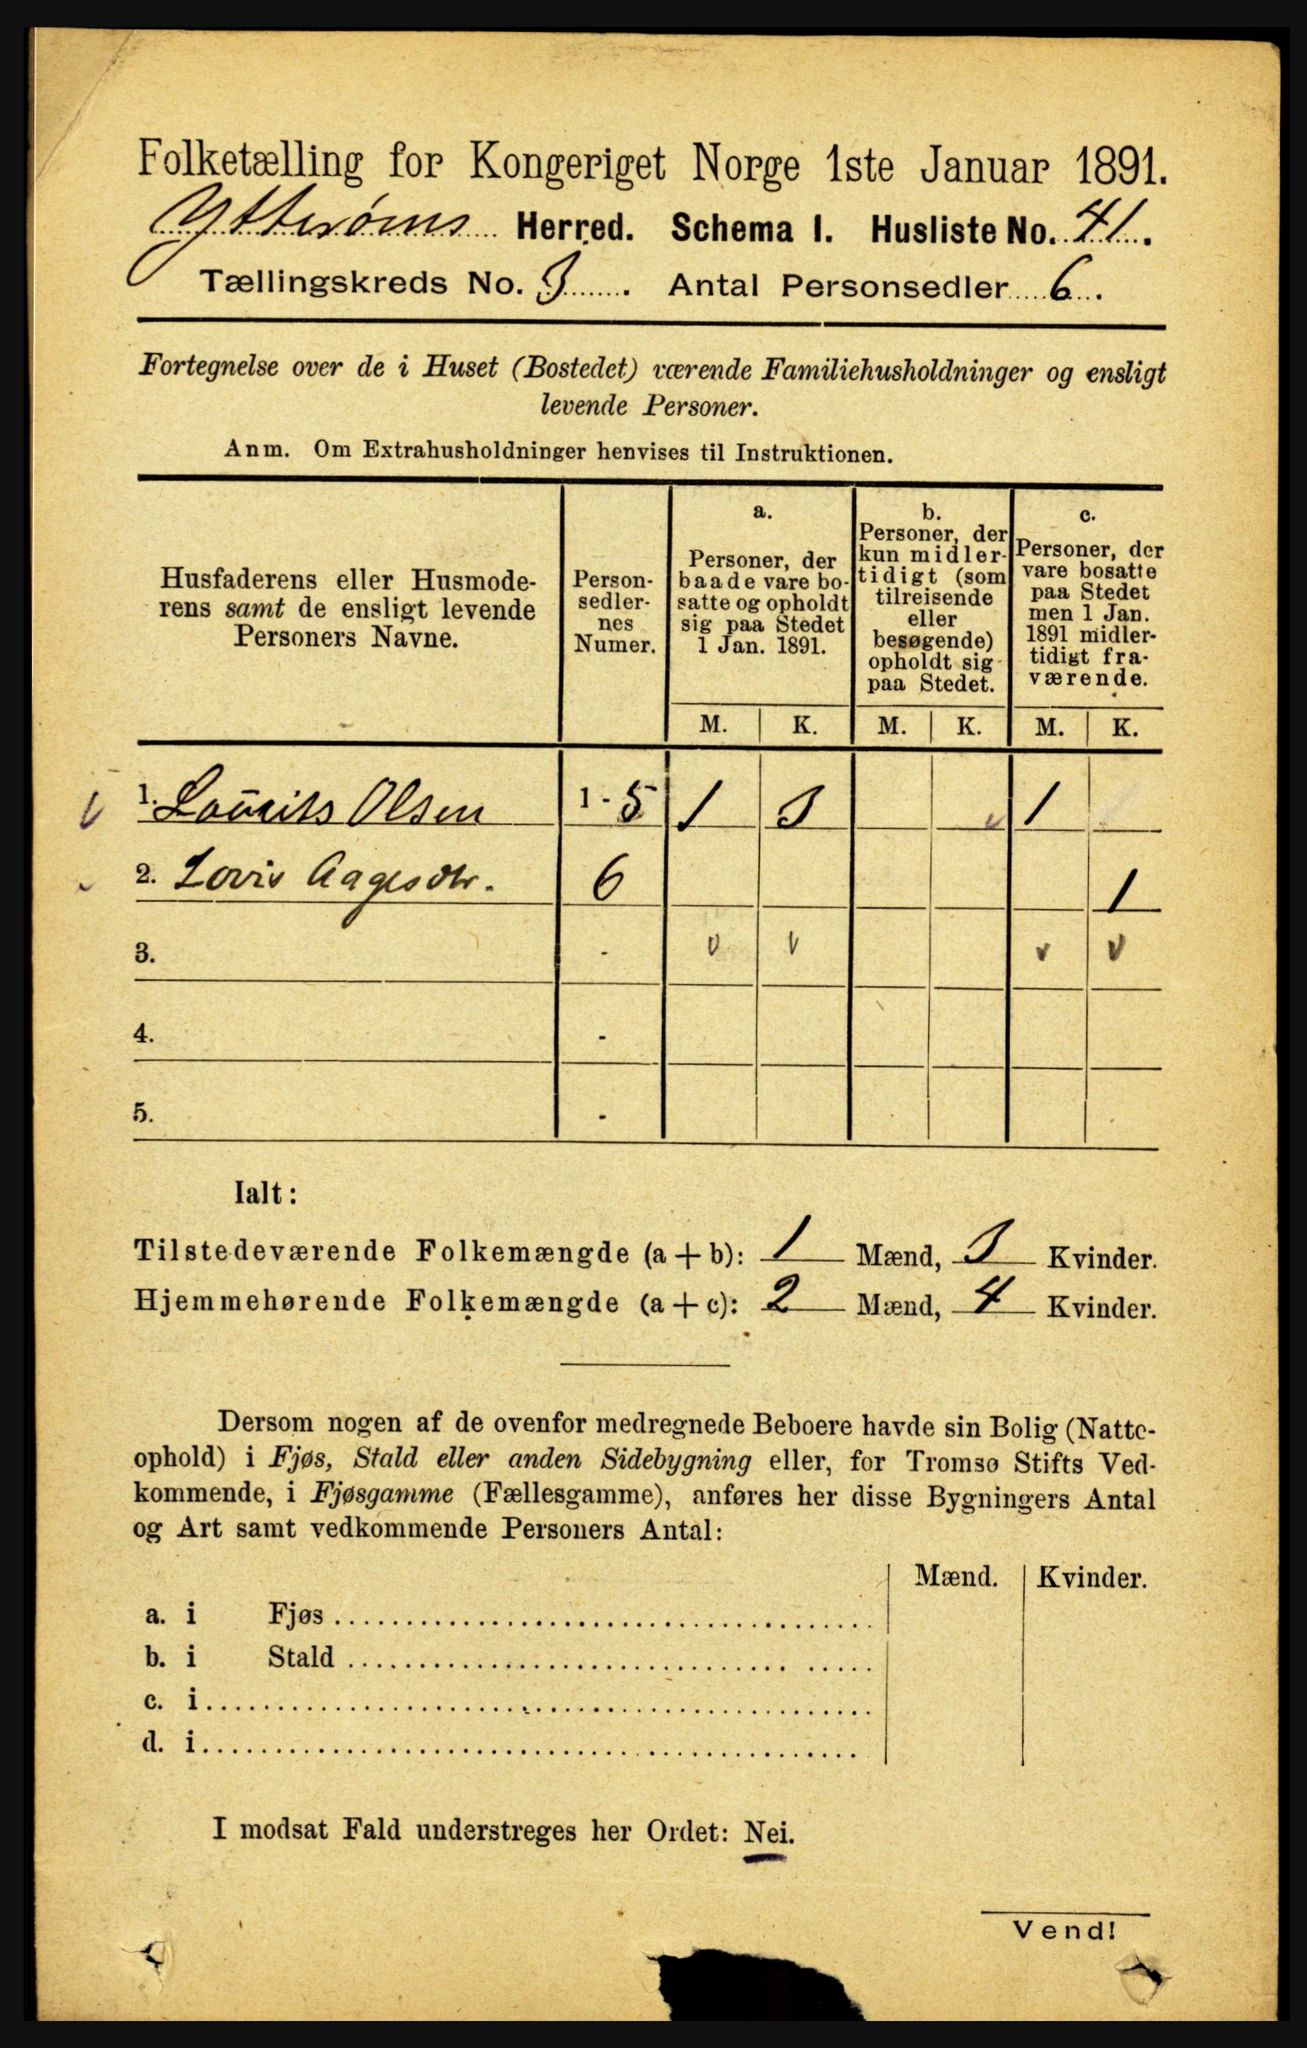 Folketælling for Kongeriget Norge 1ste Januar 1891.
Ytterøens Herred. Schema I. Husliste No. 41.
Tællingskreds No. 3. Antal Personsedler 6.
Fortegnelse over de i Huset (Bostedet) værende Familiehusholdninger og ensligt
levende Personer.
Anm. Om Extrahusholdninger henvises til Instruktionen.
Husfaderens eller Husmode-
rens samt de ensligt levende
Personers Navne.
Person-
sedler-
nes
Numer.
a.
Personer, der
baade vare bo-
satte og opholdt
sig paa Stedet
1 Jan. 1891.
b.
Personer, der
kun midler-
tidigt (som
tilreisende
eller
besøgende)
opholdt sig
paa Stedet.
c.
Personer, der
vare bosatte
paa Stedet
men 1 Jan.
1891 midler-
tidigt fra-
værende.
M. K. M. K. M. K.
1. Lourits Olsen 1 - 5 1 3 1
2. Lovis Aagesdtr. 6 1
3. -
4. -
5. -
Ialt:
Tilstedeværende Folkemængde (a + b): 1 Mænd, 3 Kvinder.
Hjemmehørende Folkemængde (a + c): 2 Mænd, 4 Kvinder.
Dersom nogen af de ovenfor medregnede Beboere havde sin Bolig (Natte-
ophold) i Fjøs, Stald eller anden Sidebygning eller, for Tromsø Stifts Ved-
kommende, i Fjøsgamme (Fællesgamme), anføres her disse Bygningers Antal
og Art samt vedkommende Personers Antal:
Mænd. Kvinder.
a. i Fjøs
b. i Stald
c. i
d. i
I modsat Fald understreges her Ordet: Nei.
Vend!